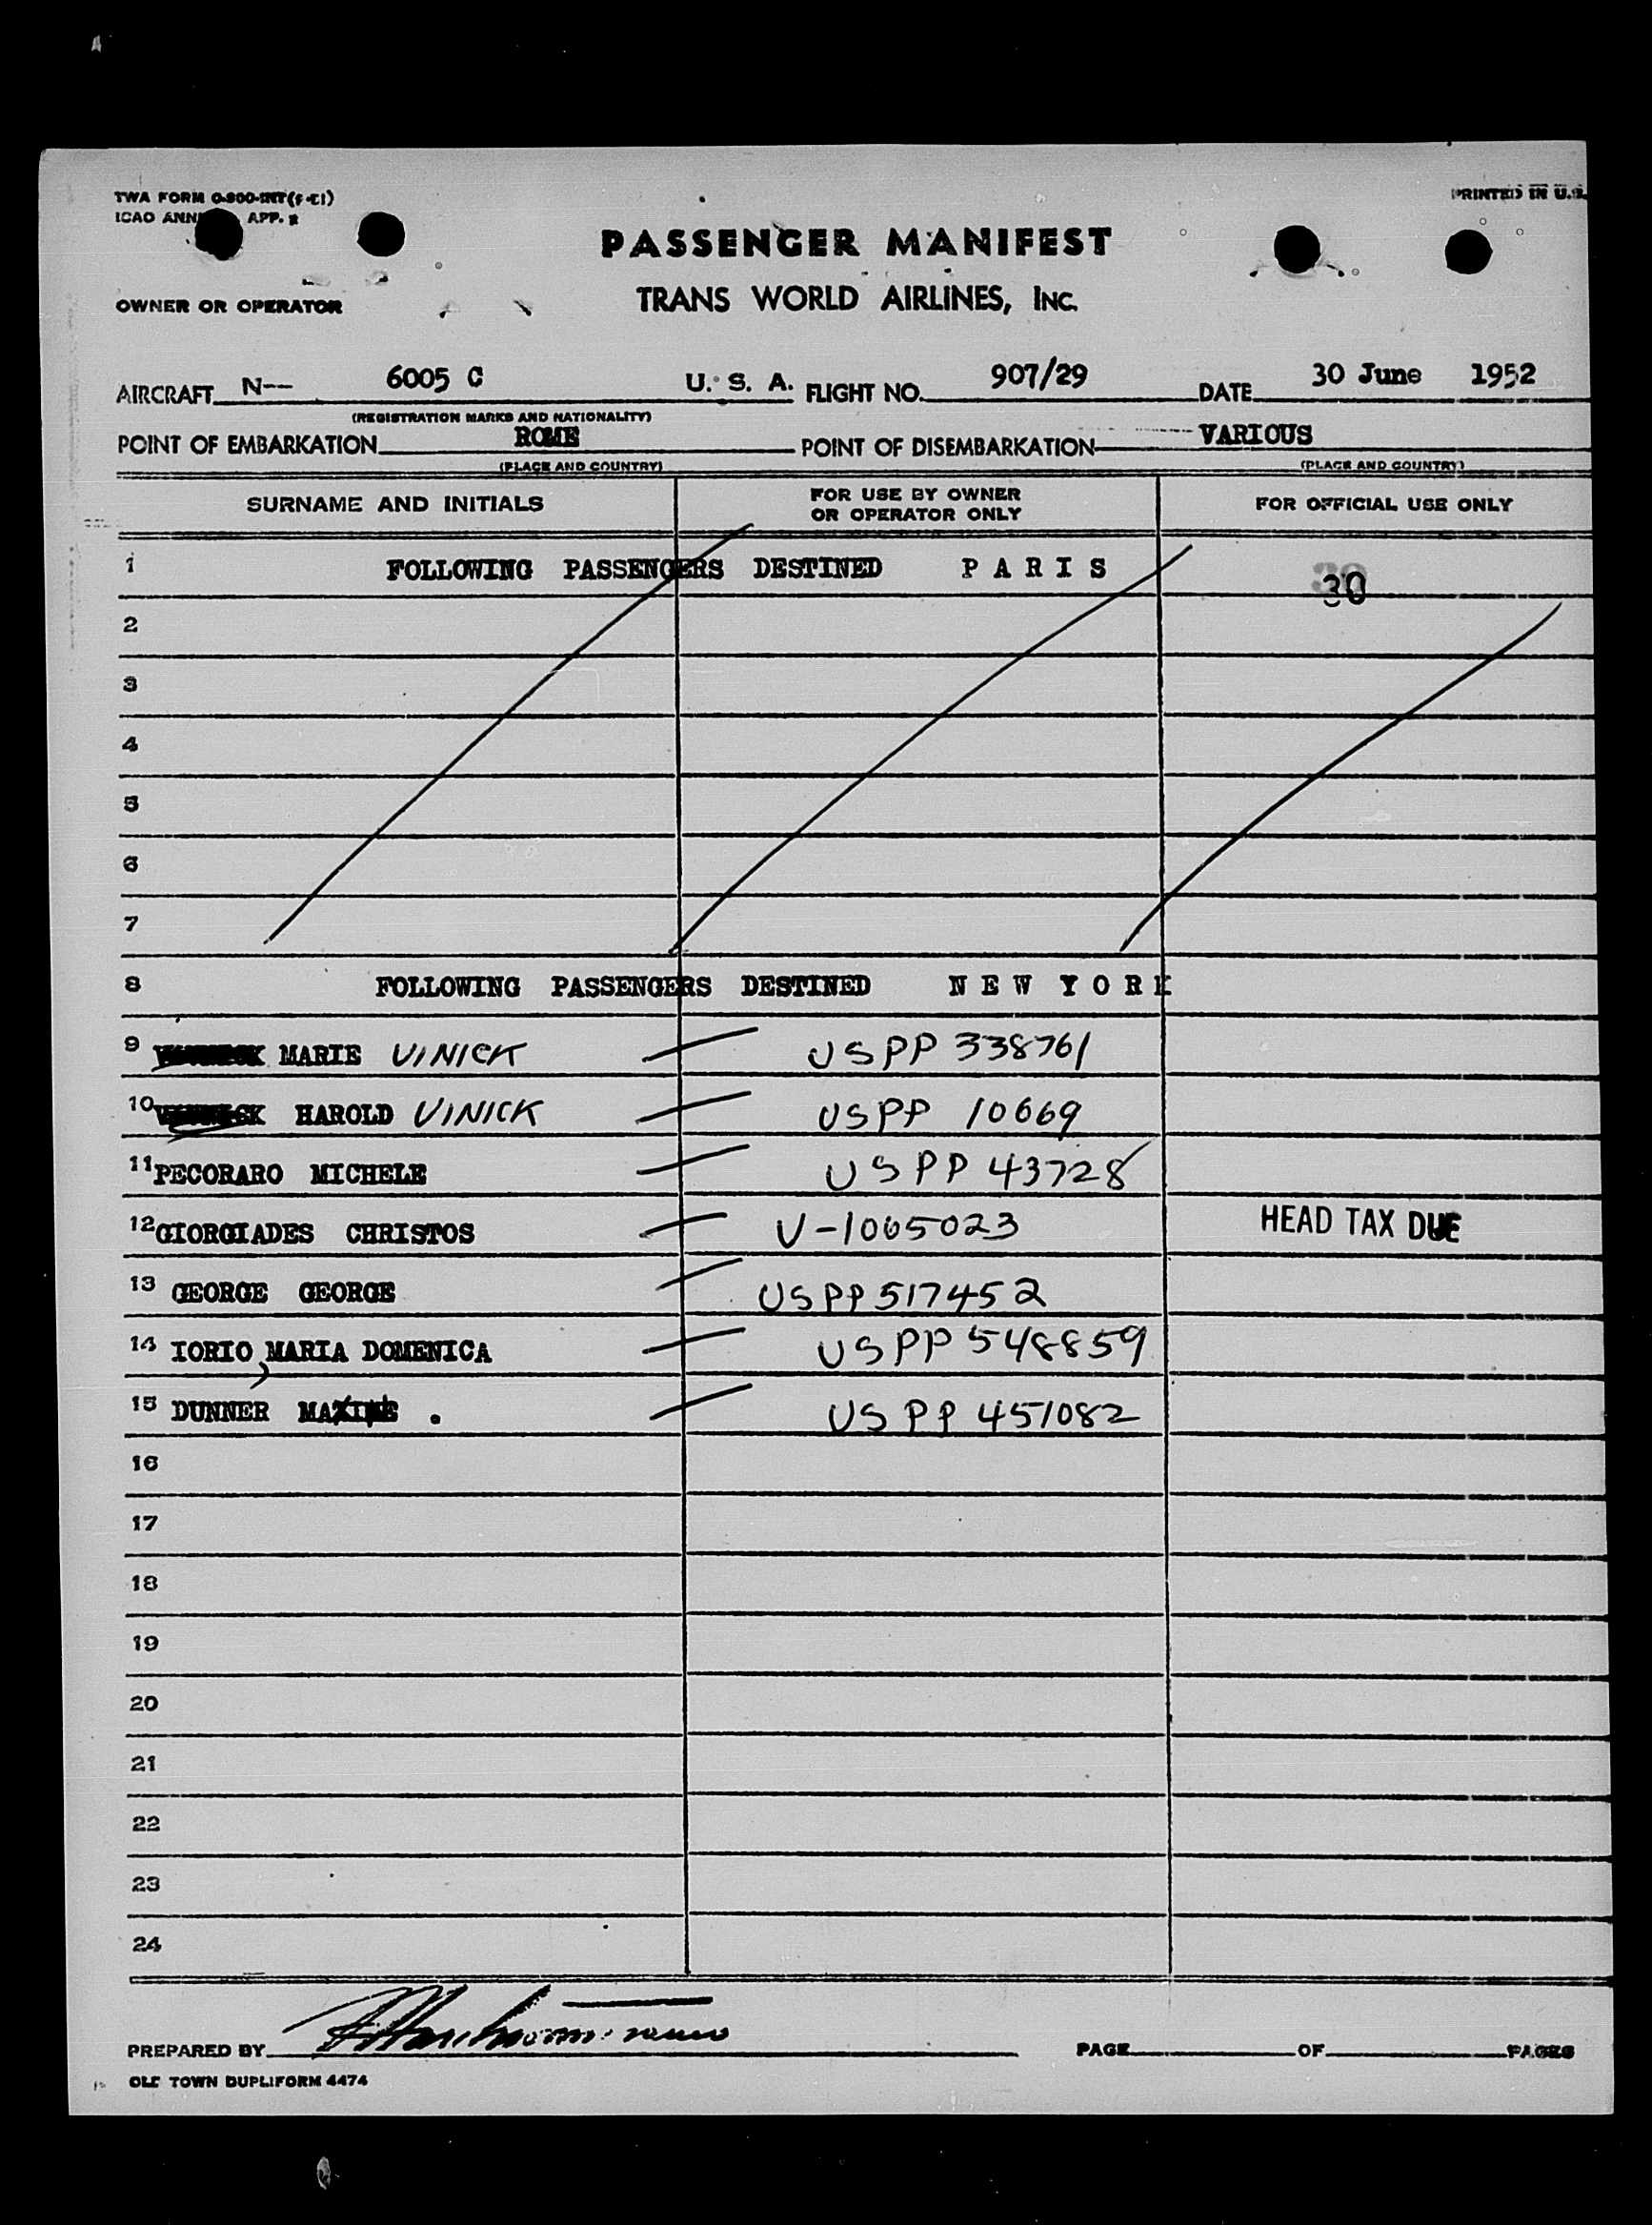 TWA FORM O-800-INT(5-51)
ICAO APP. 2
PRINTED IN U.S.
PASSENGER MANIFEST
TRANS WORLD AIRLINES, INC.
OWNER OR OPERATOR
AIRCRAFT N-- 6005 C U. S. A. FLIGHT NO. 907/29 DATE 30 June 1952
(REGISTRATION MARKS AND NATIONALITY)
POINT OF EMBARKATION ROME POINT OF DISEMBARKATION VARIOUS
(PLACE AND COUNTRY) (PLACE AND COUNTRY)
SURNAME AND INITIALS FOR USE BY OWNER OR OPERATOR ONLY FOR OFFICIAL USE ONLY
1 FOLLOWING PASSENGERS DESTINED P A R I S 30
2
3
4
5
6
7
8 FOLLOWING PASSENGERS DESTINED N E W Y O R K
9 MARIE VINICK USPP 338761
10 HAROLD VINICK USPP 10669
11 PECORARO MICHELE USPP 43728
12 GIORGIADES CHRISTOS V-1065023 HEAD TAX DUE
13 GEORGE GEORGE USPP 517452
14 IORIO, MARIA DOMENICA USPP 548859
15 DUNNER MAX . USPP 451082
16
17
18
19
20
21
22
23
24
PREPARED BY PAGE OF PAGES
OLD TOWN DUPLIFORM 4474